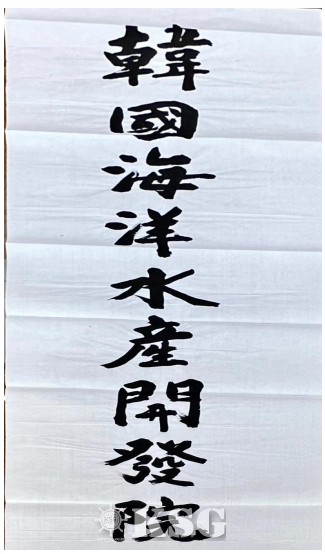 韓國海洋水産開發院
KSSG